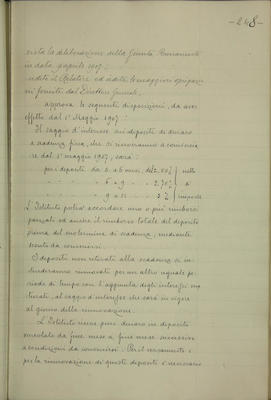 -248-
vista la deliberazione della Giunta Permanente
in data 9 aprile 1907;
udito il Relatore ed udite le maggiori spiegazio
ni fornite dal Direttore Generale,
approva le seguenti disposizioni, da aver
effetto dal 1° Maggio 1907:
Il saggio d'interesse sui depositi di denaro
a scadenza fissa, che si rinnoveranno a comincia
re dal 1° maggio 1907, sarà:
pei depositi da 3 a 6 mesi, del 2,50% netto
" " " 6 a 9 " " 2,75% d'
" " " 9 a 12 " " 3% imposta
L'Istituto potrà accordare uno o più rimborsi
parziali ed anche il rimborso totale del deposito
prima del termine di scadenza, mediante
sconto da convenirsi.
I depositi non ritirati alla scadenza si in-
tenderanno rinnovati per un altro uguale pe-
riodo di tempo con l'aggiunta degli interessi ma
turati, al saggio d'interesse che sarà in vigore
al giorno della rinnovazione.
L'Istituto riceve pure denaro in deposito
vincolato da fine mese a fine mese successivo
a condizioni da convenirsi. Per il versamento e
per la rinnovazione di questi depositi è necessario